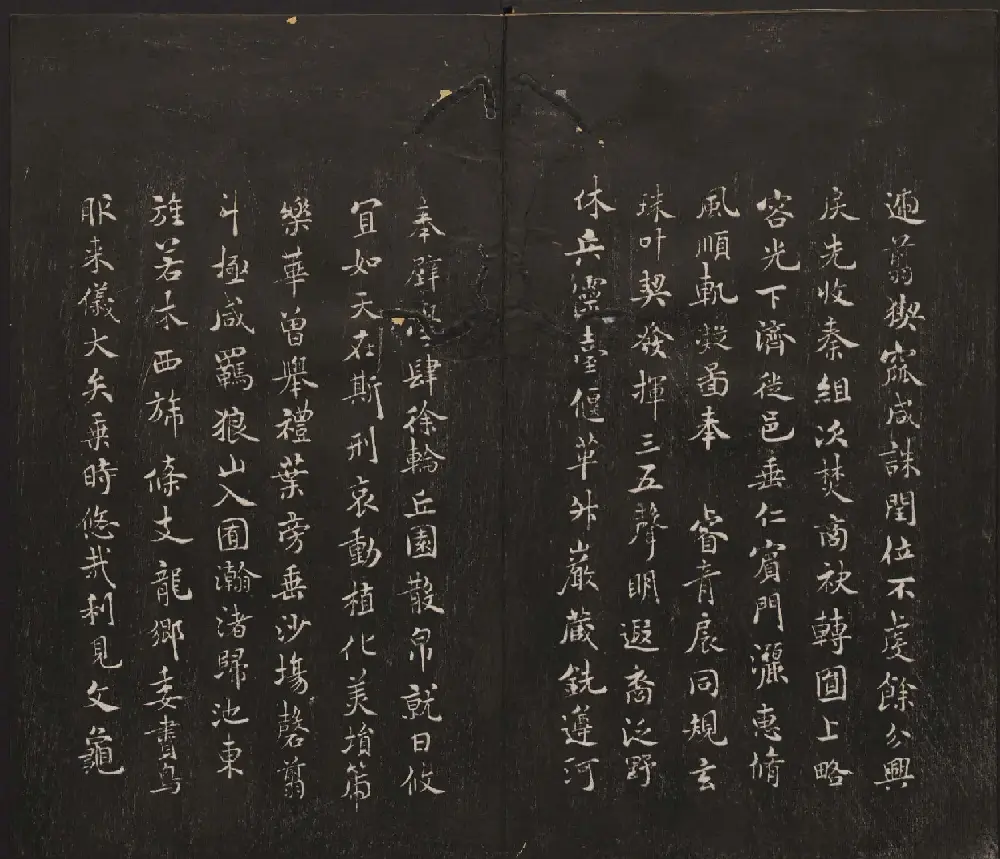 迺翦猰窳咸誅閏位不虔餘分興
戾先收秦組次焚商袂轉圓上略
容光下濟徙邑垂仁賓門灑惠脩
風順軌凝啚奉睿青扆同規玄
珠叶契發揮三五聲明遐裔泛野
休兵靈臺偃革巖藏銑遵河
奉璧肆徐輪丘園散帛就日攸
宜如天在斯刑哀動植化美墳篇
樂華曾舉禮葉旁垂沙場罄翦
斗極咸羈狼山入囿瀚渚歸池東
旌若木西旆條支龍鄉委贄鳥
服来儀大矣乘時悠哉利見文龜